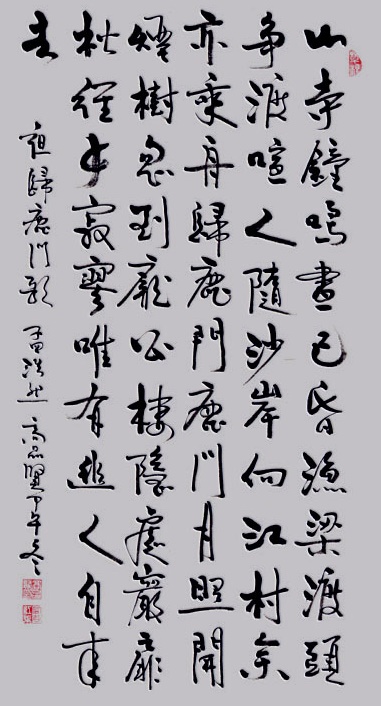 山寺鐘鳴晝已昏漁梁渡頭
爭渡喧人隨沙岸向江村余
亦乘舟歸鹿門鹿門月照開
煙樹忽到龐公棲隱處巖扉
松徑長寂寥唯有幽人自來
去
夜歸鹿門歌 孟浩然 高 甲午冬